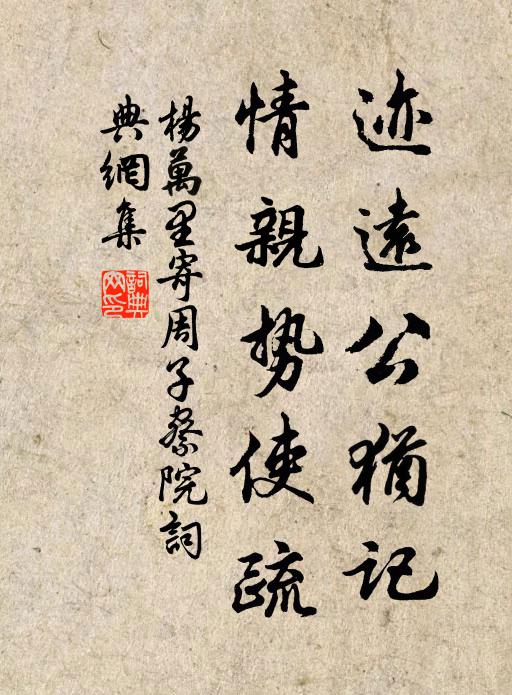 迹遠公猶記
情親勢使疏
楊萬里寄周子察院詞
典網集
詞典
网印